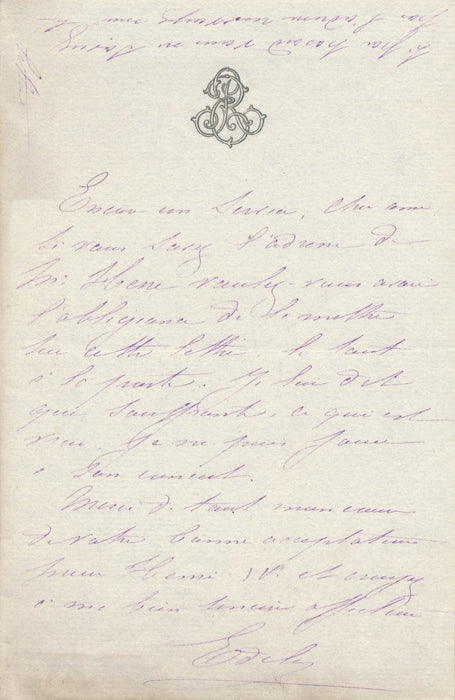 Encore un service, cher ami
Si vous savez l'adresse de
Mr. Hene voulez-vous avoir
l'obligeance de la mettre
sur cette lettre le tout
à la poste. Je lui dit
que souffrante, ce qui est
vrai je ne puis jouer
à son concert.
Merci de tout mon cœur
de votre bonne acceptation
pour Henri IV. et croyez
à ma bien sincère affection
Si par hasard vous ne saviez
pas l'adresse renvoyez